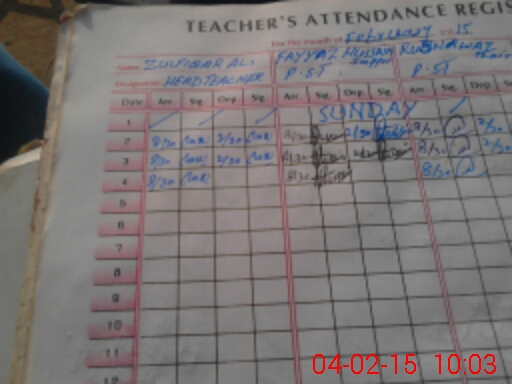 TEACHER'S ATTENDANCE REGIS
For the month of February 2015
Name ZULFIQAR ALI FAYYAZ HUSSAIN RABNAWAZ
HEADTEACHER P.ST. P.ST
Date Arr. Sig. Dep. Sig. Arr. Sig. Dep. Sig. Arr. Sig.
1 SUNDAY
2 8/30 2/30 8/30 2/30 8/30 2/30
3 8/30 2/30 8/30 2/30 8/30 2/30
4 8/30 8/30 8/30
5
6
7
8
9
10
11
12
04-02-15 10:03